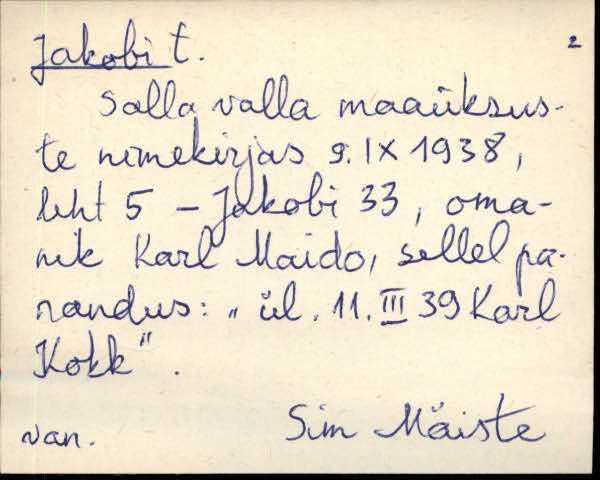 Jakobi t. 2
Salla valla maaüksus-
te nimekirjas 9. IX 1938,
leht 5 – Jakobi 33, oma-
nik Karl Maido, sellel pa-
randus: „ül. 11. III 39 Karl
Kokk".
van. Sim Mäiste